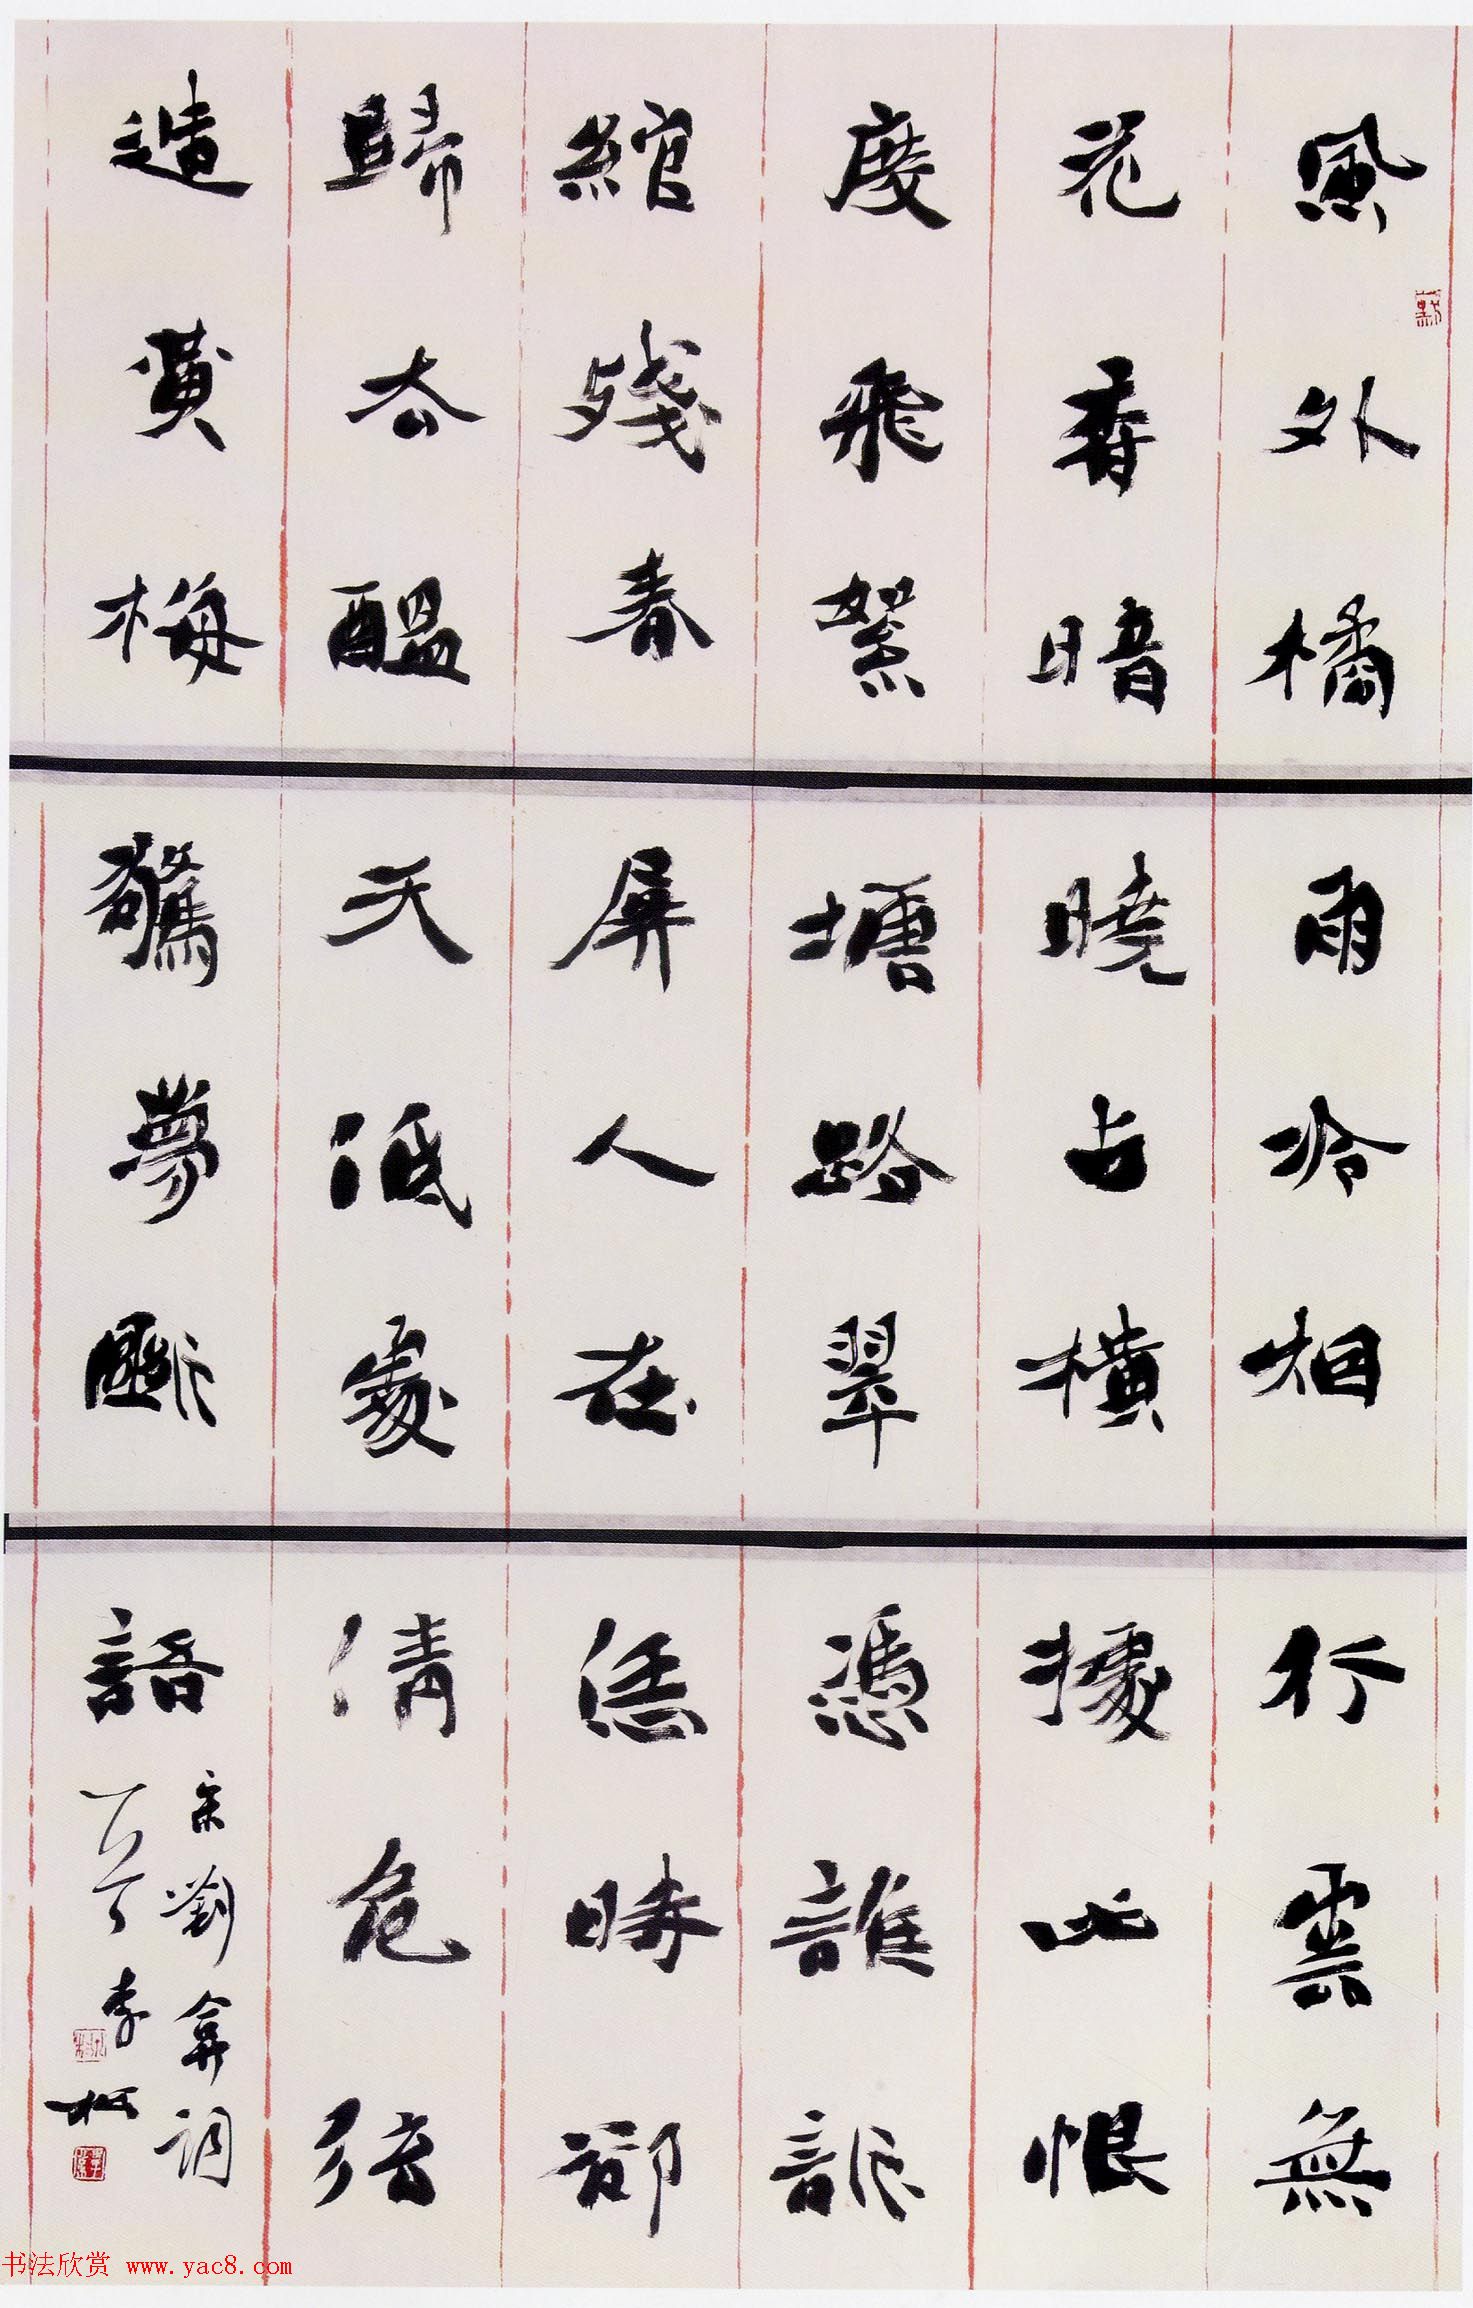 風外橘
花香暗
度飛絮
綰殘春
歸去醞
造黃梅
雨冷烟
曉占橫
塘路翠
屏人在
天低處
驚夢斷
行雲無
據此恨
憑誰訴
恁時卻
倩危弦
語
宋劉弇詞
丁亥李松
书法欣赏 www.yac8.com